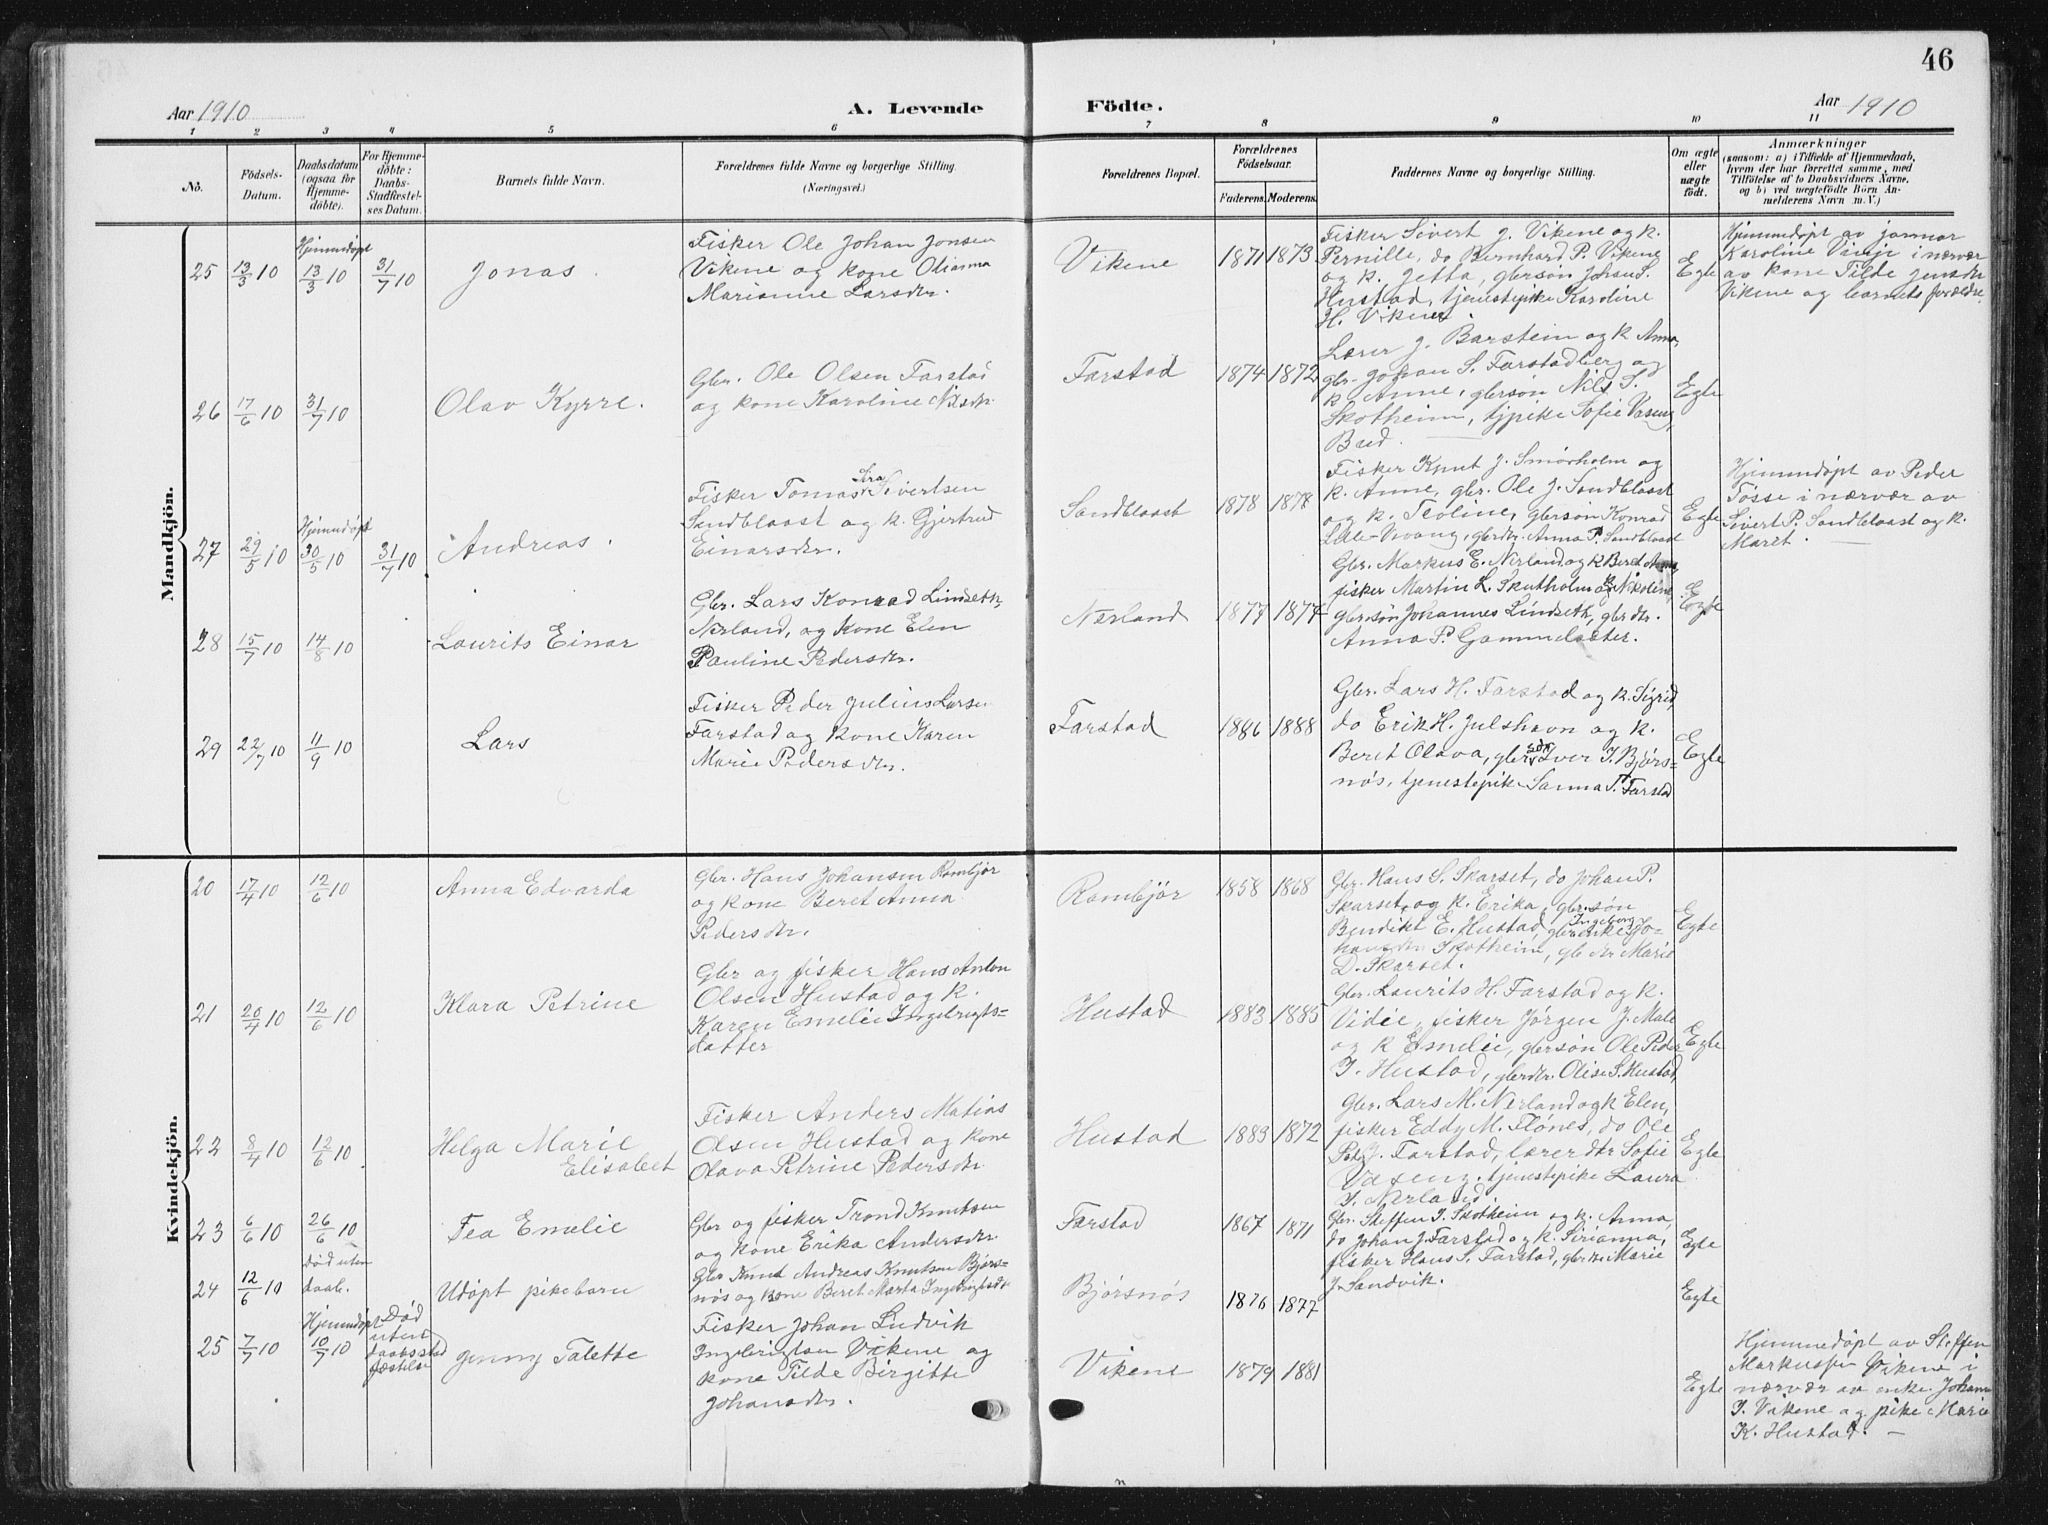 46
Aar 1910
A. Levende
Födte.
Aar 1910
1 2 3 4 5 6 7 8 9 10 11
No.
Födsels-
Datum.
Daabsdatum
(ogsaa for
Hjemme-
döbte).
For Hjemme-
döbte:
Daabs-
Stadfæstel-
ses Datum.
Barnets fulde Navn.
Forældrenes fulde Navne og borgerlige Stilling.
(Næringsvei.)
Forældrenes Bopæl.
Forældrenes
Födselsaar.
Faderens. Moderens.
Faddernes Navne og borgerlige Stilling.
Om ægte
eller
uægte
födt.
Anmærkninger
(saasom: a) i Tilfælde af Hjemmedaab,
hvem der har forrettet samme, med
Tilföielse af to Daabsvidners Navne,
og b) ved uægtefödte Börn An-
melderens Navn m. V.)
Mandkjön.
25 13/3 10
Hjemmedøpt
13/3 10
31/7 10
Jonas.
Fisker Ole Johan Jonsen
Vikene og kone Olianna
Marianne Larsdtr.
Vikene
1871 1873
Fisker Sivert J. Vikene og k.
Pernille, do Bernhard P. Vikene
og k. Jetta, gbrsøn Johan S.
Hustad, tjenestepike Karoline
H. Vikene
Egte
Hjemmedøpt av jormor
Karoline Vassje i nærvær
av kone Tilde Jensdtr
Vikene og barnets forældre.
26 17/6 10
31/7 10
Olav Kyrre.
Gbr. Ole Olsen Farstad
og kone Karoline Nilsdtr.
Farstad
1874 1872
Lærer J. Barstein og k Anna,
gbr. Johan S. Farstadberg og
k Anne, gbrsøn Nils S.
Skotheim, tjpike Sofie Vaseng,
Bud.
Egte
27 29/5 10
Hjemmedøpt
30/5 10
31/7 10
Andreas.
Fisker Tomas Sira Sivertsen
Sandblaast og k. Gjertrud
Einarsdtr.
Sandblaast
1878 1878
Fisker Knut J. Smørholm og
k. Anne, gbr. Ole J. Sandblaast
og k. Teoline, gbrsøn Konrad
Lille-Vraang, gbrdtr. Anna P. Sandblaast
Egte
Hjemmedøpt av Peder
Tøsse i nærvær av
Sivert P. Sandblaast og k.
Maret.
28 15/7 10
14/8 10
Laurits Einar
Gbr. Lars Konrad Lindseth,
Nerland, og kone Elen
Pauline Pedersdtr.
Nerland
1877 1874
Gbr. Markus E. Nerland og k Beret Anna,
fisker Martin L. Skutholm og k. Nikoline,
gbrsøn Johannes Lindseth, gbrdtr.
Anna P. Gammelsæter.
Egte
29 22/7 10
11/9 10
Lars
Fisker Peder Julius Larsen
Farstad og kone Karen
Marie Pedersdtr.
Farstad
1886 1888
Gbr. Lars H. Farstad og k. Sigrid,
do Erik H. Julshavn og k.
Beret Olava, gbrsøn Iver I. Bjørs-
nøs, tjenestepike Sanna T. Farstad
Egte
Kvindekjön.
20 17/4 10
12/6 10
Anna Edvarda
Gbr. Hans Johansen Rambjør
og kone Beret Anna
Pedersdtr.
Rambjør
1858 1868
Gbr. Hans S. Skarset, do Johan P.
Skarset og k. Erika, gbr.søn
Bendikt E. Hustad, gbrenke Ingeborg Jo-
hansdtr Skotheim, gbdtr Marie
D. Skarset.
Egte
21 20/4 10
12/6 10
Klara Petrine
Gbr og fisker Hans Anton
Olsen Hustad og k.
Karen Emelie Ingebrigts-
datter
Hustad
1883 1885
Gbr. Laurits H. Farstad og k.
Vidie, fisker Jørgen J. Male
og k Emelie, gbrsøn Ole Peder
I. Hustad, gbrdtr. Olise S. Hustad,
Egte
22 8/4 10
12/6 10
Helga Marie
Elisabet
Fisker Anders Matias
Olsen Hustad og kone
Olava Petrine Pedersdtr
Hustad
1883 1872
Gbr. Lars M. Nerland og k Elen,
fisker Eddy M. Flønes, do Ole
Peder J. Farstad, lærerdtr Sofie
Vaseng, tjenestepike Laura
I. Nerland.
Egte
23 6/6 10
26/6 10
Fea Emelie
Gbr og fisker Trond Knutsen
og kone Erika Andersdtr
Farstad
1867 1871
Gbr. Steffen I. Skotheim og k. Anna,
do Johan J. Farstad og k. Sirianna,
fisker Hans S. Farstad, gbrdtr. Marie
J. Sandvik.
Egte
24 12/6 10
Død uten
daab.
Udøpt pikebarn
Gbr Knut Andreas Knutsen Bjørs-
nøs og kone Beret Marta Ingebrigtsdtr
Bjørsnøs
1876 1877
Egte
25 7/7 10
Hjemmedøpt
10/7 10
Død
uten
daabsstad
fæstelse
Jenny Talette
Fisker Johan Ludvik
Ingebrigtsen Vikene og
kone Tilde Birgitte
Johansdtr.
Vikene
1879 1881
Egte
Hjemmedøpt av Steffen
Markussen Vikene i
nærvær av enke Johanna
I. Vikene og pike Marie
K. Hustad.